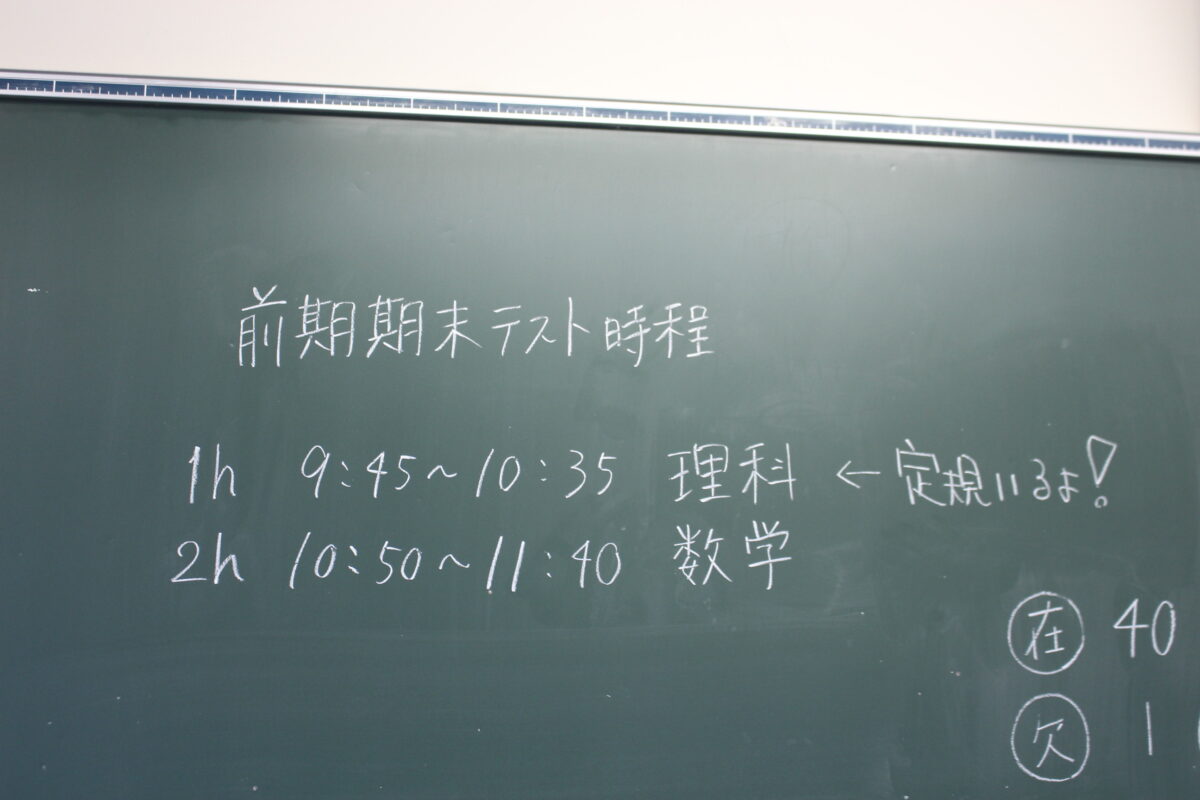 前期期末テスト時程
1h 9:45～10:35 理科 ← 定規いるよ!
2h 10:50～11:40 数学
在 40
欠 1